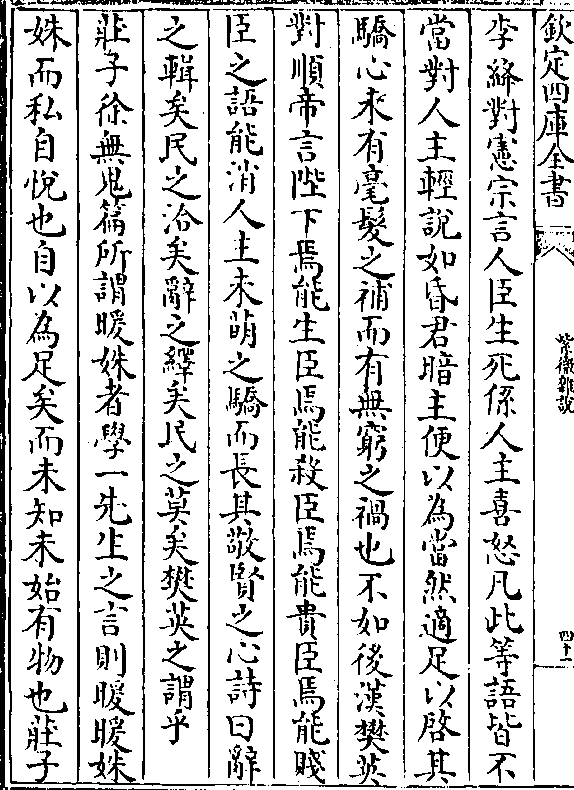 欽定四庫全書
紫微雜說
四十一
李絳對憲宗言人臣生死係人主喜怒凡此等語皆不
當對人主輕說如昏君暗主便以為當然適足以啓其
驕心未有毫髮之補而有無窮之禍也不如後漢樊英
對順帝言陛下焉能生臣焉能殺臣焉能貴臣焉能賤
臣之語能消人主未萌之驕而長其敬賢之心詩曰辭
之輯矣民之洽矣辭之繹矣民之莫矣樊英之謂乎
莊子徐無鬼篇所謂暖姝者學一先生之言則暖暖姝
姝而私自悅也自以為足矣而未知未始有物也莊子